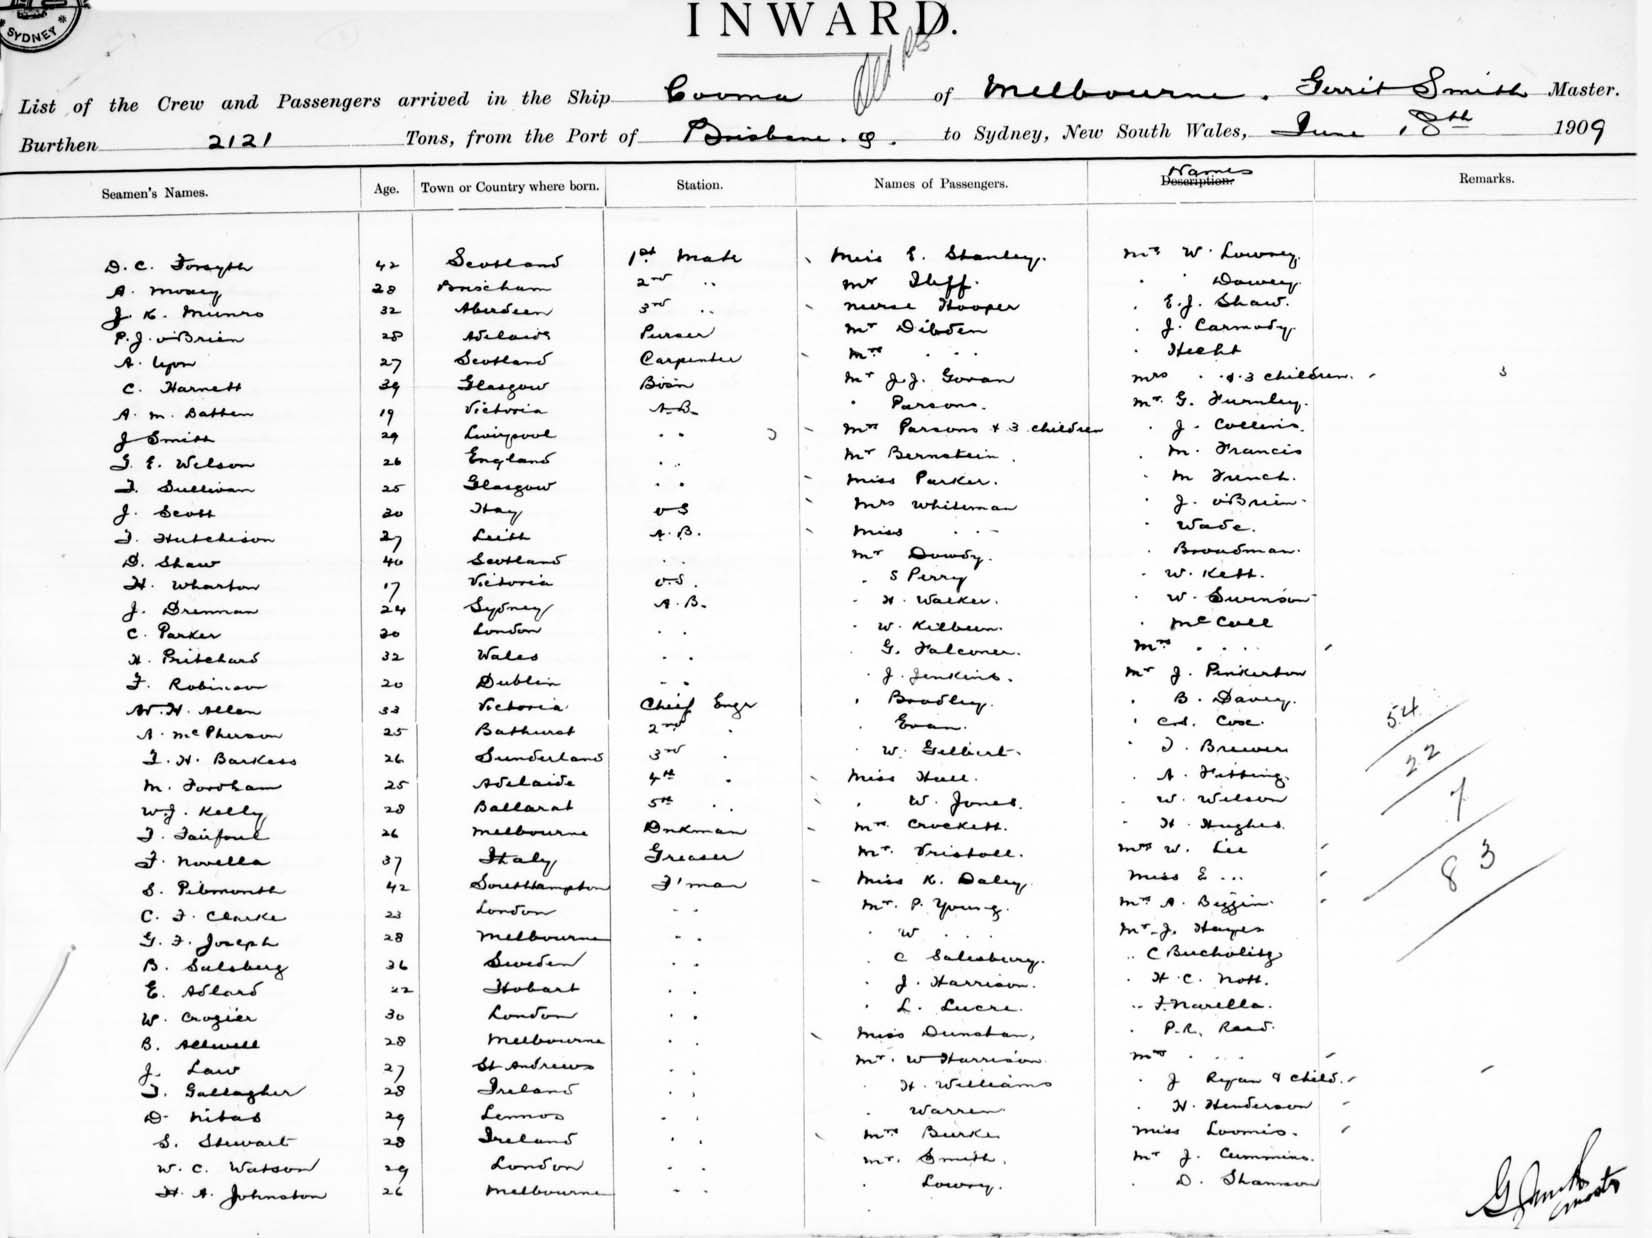 SYDNEY
INWARD.
List of the Crew and Passengers arrived in the Ship Cooma of Melbourne. Gerrit Smith Master.
Burthen 2121 Tons, from the Port of Brisbane. Q. to Sydney, New South Wales, June 18th 1909
Seamen's Names. Age. Town or Country where born. Station. Names of Passengers. Names Description. Remarks.
D. C. Forsyth 42 Scotland 1st Mate Miss E. Stanley. Mr W. Lowrey.
A. Moxey 28 Brixham 2nd .. Mr Iliff. . Dowey.
J. K. Munro 32 Aberdeen 3rd .. Nurse Hooper . E. J. Shaw.
P. J. O'Brien 28 Adelaide Purser Mr Dibden . J. Carmody.
A. Lyon 27 Scotland Carpenter Mrs . . . . Hecht
C. Harnett 39 Glasgow Bosn Mr J. J. Govan Mrs . & 3 children. 3
A. M. Batten 19 Victoria A.B. . Parsons. Mr. G. Furnley.
J Smith 29 Liverpool . . Mrs Parsons & 3 children . J. Collins.
G. E. Wilson 26 England . . Mr Bernstein . . M. Francis
F. Sullivan 25 Glasgow . . Miss Parker. . M French.
J. Scott 20 Hay O S Mrs Whiteman . J. O'Brien.
F. Hutchison 27 Leith A.B. Miss . . . . Wade.
D. Shaw 40 Scotland . . Mr Dowdy. . Broadman.
H. Wharton 17 Victoria O.S. . S Perry . W. Kett.
J. Drennan 24 Sydney A.B. . H. Walker. . W. Swinson
C. Parker 20 London . . . W. Kilburn. . McColl
H. Pritchard 32 Wales . . . G. Falconer. Mrs . . . .
F. Robinson 20 Dublin . . . J. Jenkins. Mr J. Pinkerton
W. H. Allen 33 Victoria Chief Engr . Bradley. . B. Davey.
A. McPherson 25 Bathurst 2nd . . Evan. . Cox.
F. H. Barkess 26 Sunderland 3rd . . W. Gilbert. . J. Brewer 54
M. Fordham 25 Adelaide 4th . Miss Hall. . A. Fitting. 22
W. J. Kelly 28 Ballarat 5th . . . W. Jones. . W. Wilson 7
F. Fairfoul 26 Melbourne Dnkman Mrs. Crockett. . H. Hughes. 83
F. Novella 37 Italy Greaser Mr. Mrs W. Lee
S. 42 Southampton F'man Miss K. Daley. Miss E . . .
C. F. Clarke 23 London . . Mr. P. Young. Mrs A. Beggin.
G. F. Joseph 28 Melbourne . . . W . . . . Mr. J. Hayes
B. Salsberg 36 Sweden . . . C Salesbury. . C Bucholitz
E. Adlard 22 Hobart . . . J. Harrison. . H. C. Nott.
W. Crozier 30 London . . . L. Lucre. . F. Narella.
B. Allwell 28 Melbourne . . Miss Dunstan. . P. R. Read.
J. Law 27 St Andrews . . Mr. W Harrison. Mrs . . . .
F. Gallagher 28 Ireland . . . H. Williams . J Ryan & Child.
D. Mitas 29 Lemnos . . . Warren . H. Henderson
S. Stewart 28 Ireland . . Mrs Burke Miss Loomis.
W. C. Watson 29 London . . Mr. Smith. Mr J. Cummins.
H. A. Johnston 26 Melbourne . . . Lowry. . D. Shannon
G Smith Master